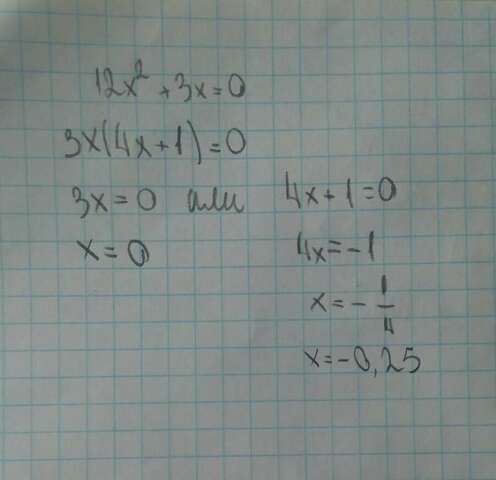 12x² + 3x = 0
3x(4x + 1) = 0
3x = 0 или 4x + 1 = 0
x = 0 4x = -1
x = - 1/4
x = -0,25